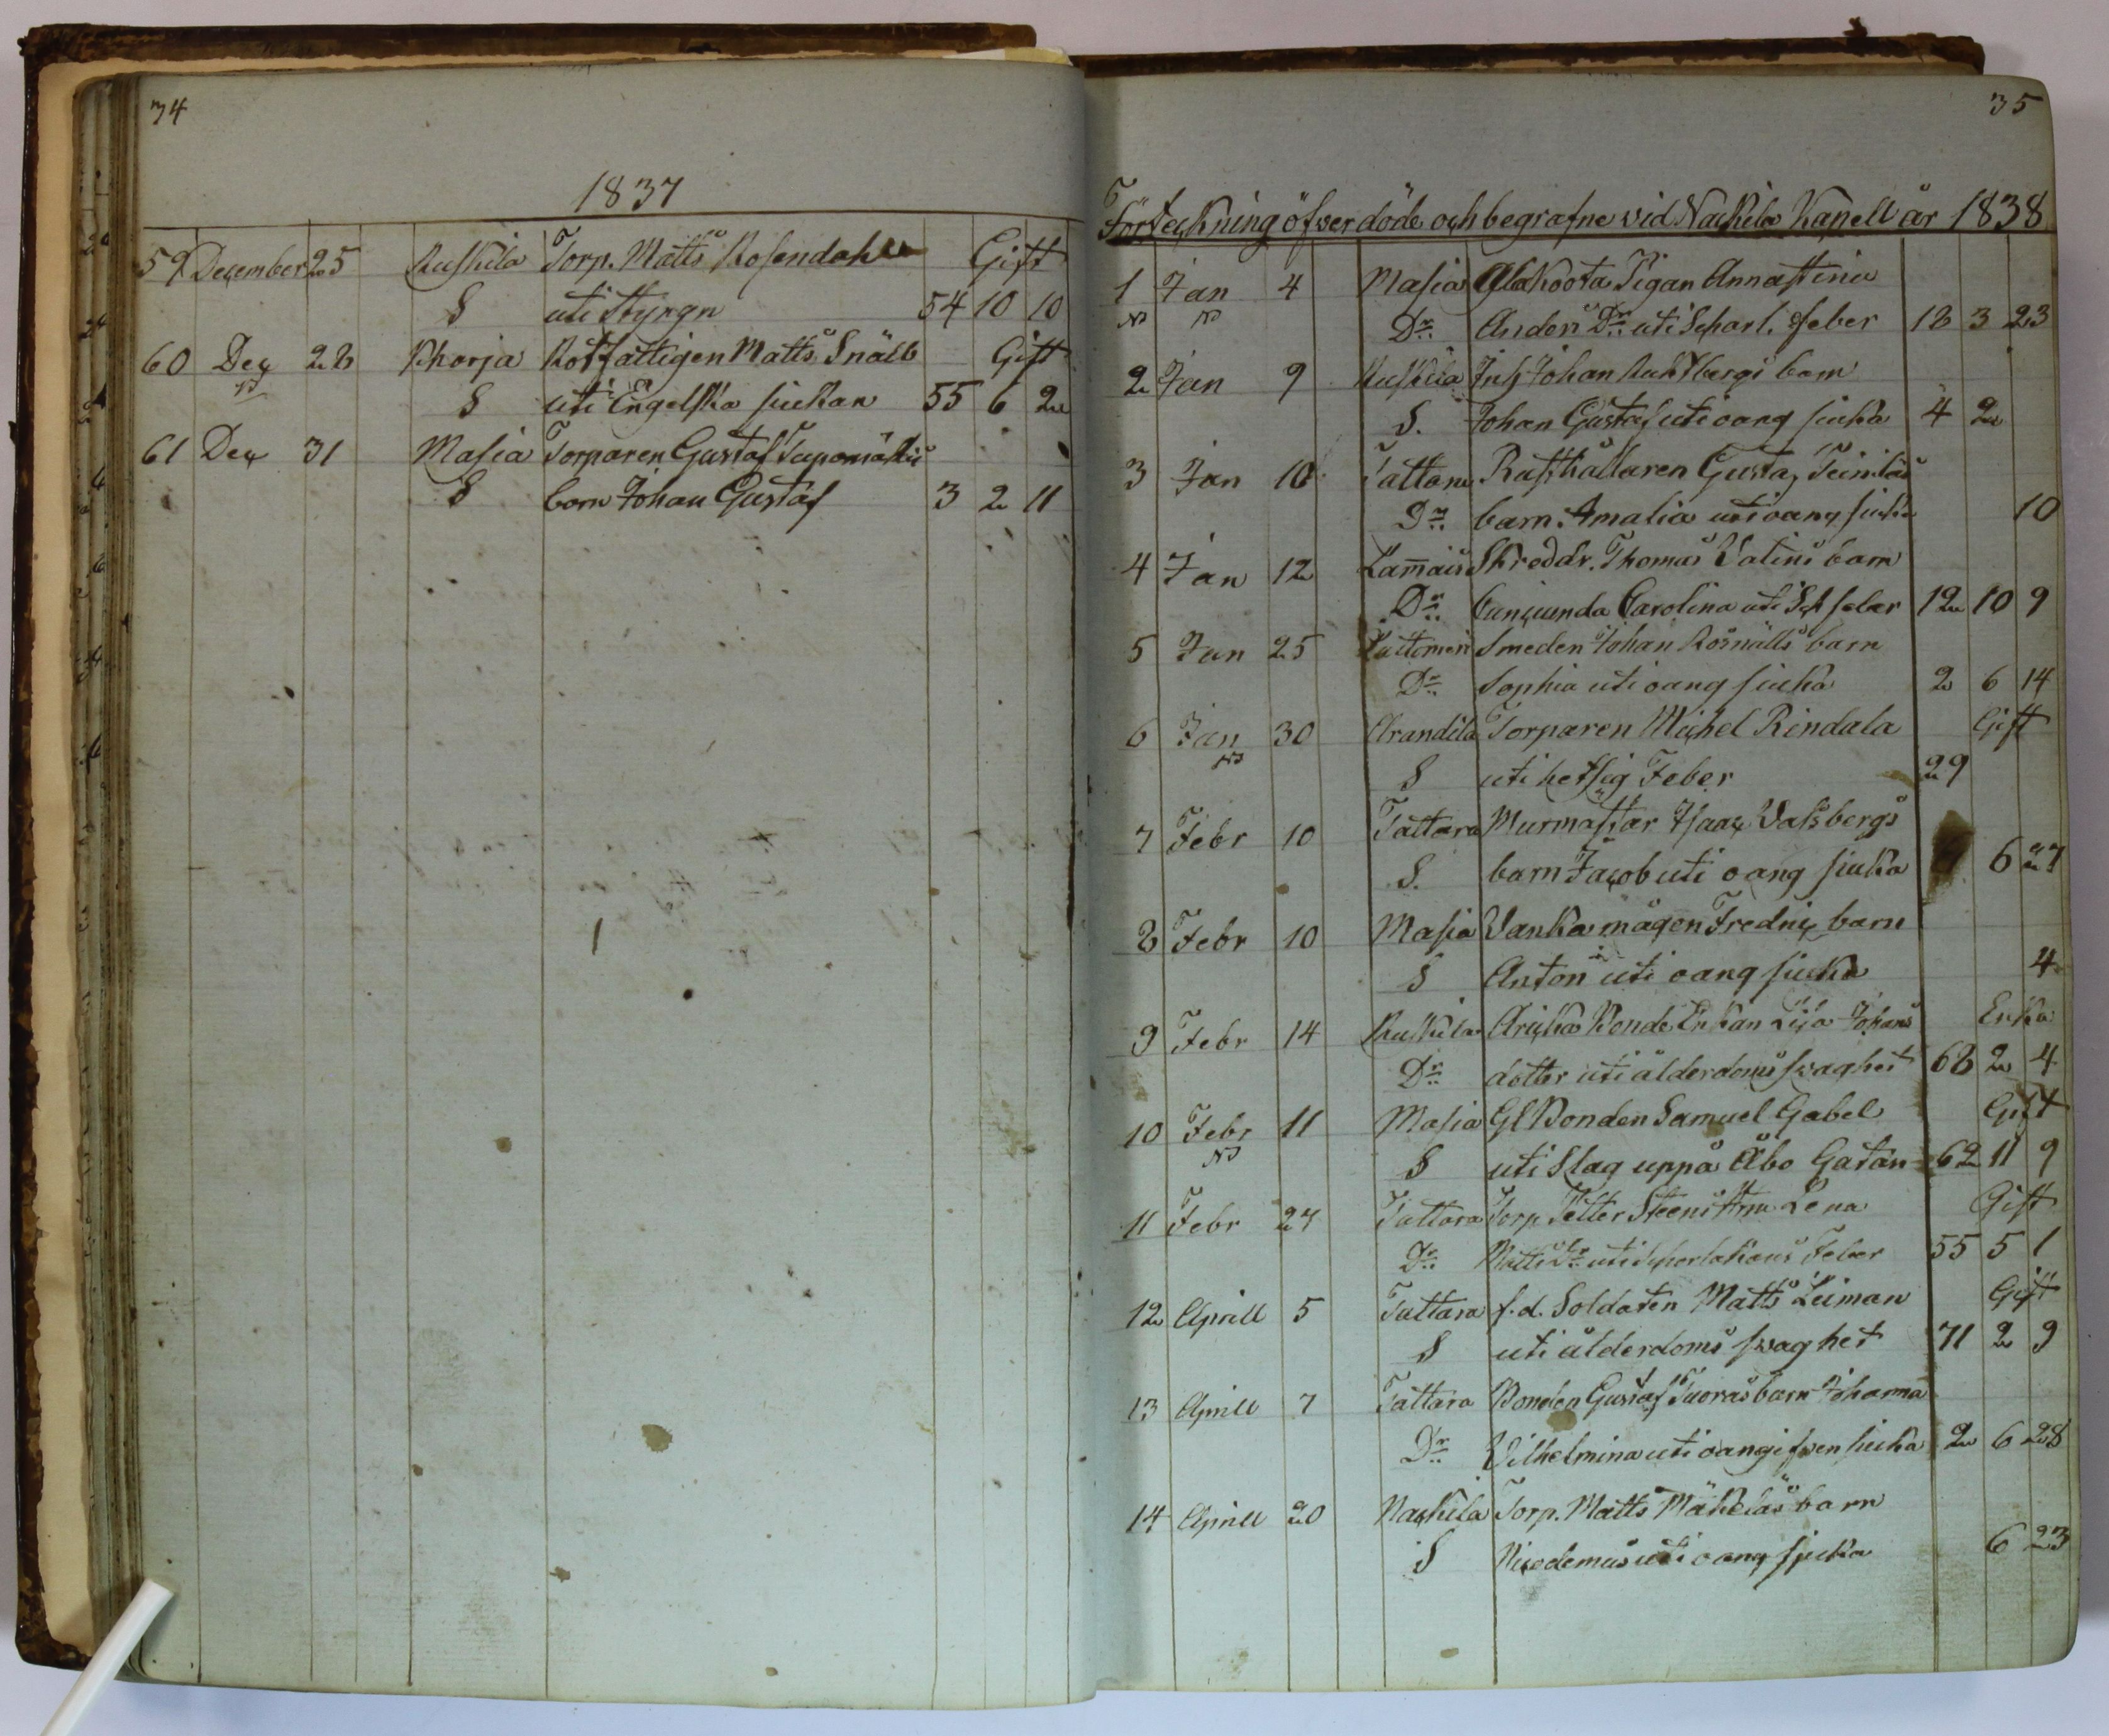 34
1837
59 December 25 Ruskila Torp. Matts Rosendahl Gift
S uti Styngn 54 10 10
60 Dec 28 Pikorja Rotfattigen Matts Snäll Gift
S uti Engelska siukan 55 6 2
61 Dec 31 Masia Torparen Gustaf
S barn Johan Gustaf 3 2 11
35
Förteckning öfver döde och begrafne vid Nackila Kapell år 1838
1 Jan 4 Masia Alakoota Pigan Annastina
Dr Anders Dr uti Scharl. feber 18 3 23
2 Jan 9 Ruskila Inh Johan barn
S. Johan Gustaf uti oang siuka 4 2
3 Jan 10 Tattara Rusthållaren Gustaf
Dr barn Amalia uti oang siuka 10
4 Jan 12 Lam̄ais Skreddr. Thomas Valins barn
Dr Cunigunda Carolina uti feber 12 10 9
5 Jan 25 Kuttomeri Smeden Johan Rosnälls barn
Dr Sophia uti oang siuka 2 6 14
6 Jan 30 Arandila Torparen Michel Rindala Gift
S uti hetsig Feber 29
7 Febr 10 Tattara Murmästar Isaac Valsbergs
S. barn Jacob uti oang siuka 6 27
8 Febr 10 Masia Vanka mågen Fredric barn
S Anton uti oang siuka 4
9 Febr 14 Ruskila Bonde Enkan Lisa Johans Enka
Dr dotter uti ålderdoms svaghet 68 2 4
10 Febr 11 Masia Gl Bonden Samuel Gabel Gift
S uti Slag uppå Åbo Gatan 62 11 9
11 Febr 27 Tattara Torp Petter Steens Hru Lena Gift
Dr Matts Dr uti Scharlakans Feber 55 5 1
12 Aprill 5 Tattara f.d. Soldaten Matts Leiman Gift
S uti ålderdoms svaghet 71 2 9
13 Aprill 7 Tattara Bonden Gustaf Tuoras barn Johanna
Dr Vilhelmina uti oangifven siuka 2 6 28
14 Aprill 20 Nackila Torp. Matts Mäkeläs barn
S Nicodemus uti oang siuka 6 23